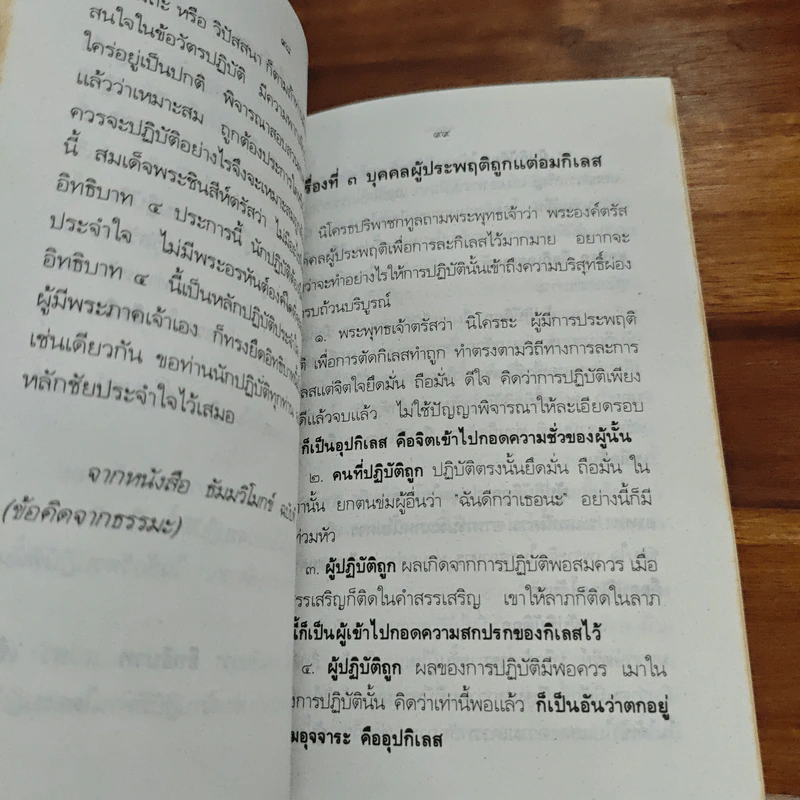 หรือ วิปัสสนา ก็ตาม
สนใจในข้อวัตรปฏิบัติ
ใคร่อยู่เป็นปกติ พิจารณาสอบสวน
แล้วว่าเหมาะสม ถูกต้องประการใด
ควรจะปฏิบัติอย่างไรจึงจะเหมาะสม
นี้ สมเด็จพระชินสีห์ตรัสว่า
อิทธิบาท ๔ ประการนี้ นักปฏิบัติ
ประจำใจ ไม่มีพระอรหันต์องค์ใด
อิทธิบาท ๔ นี้เป็นหลักปฏิบัติประจำ
ผู้มีพระภาคเจ้าเอง ก็ทรงยึดอิทธิบาท
เช่นเดียวกัน ขอท่านนักปฏิบัติทุกท่าน
หลักชัยประจำใจไว้เสมอ
จากหนังสือ ธัมมวิโมกข์
(ข้อคิดจากธรรมะ)
๙๙
รื่องที่ ๓ บุคคลผู้ประพฤติถูกแต่อมกิเลส
นิโครธปริพาชกทูลถามพระพุทธเจ้าว่า พระองค์ตรัส
คคลผู้ประพฤติเพื่อการละกิเลสไว้มากมาย อยากจะ
ว่าจะทำอย่างไรให้การปฏิบัตินั้นเข้าถึงความบริสุทธิ์ผ่อง
รบถ้วนบริบูรณ์
๑. พระพุทธเจ้าตรัสว่า นิโครธะ ผู้มีการประพฤติ
ติ เพื่อการตัดกิเลสทำถูก ทำตรงตามวิถีทางการละการ
ลสแต่จิตใจยึดมั่น ถือมั่น ดีใจ คิดว่าการปฏิบัติเพียง
ดีแล้วจบแล้ว ไม่ใช้ปัญญาพิจารณาให้ละเอียดรอบ
ก็เป็นอุปกิเลส คือจิตเข้าไปกอดความชั่วของผู้นั้น
๒. คนที่ปฏิบัติถูก ปฏิบัติตรงนั้นยึดมั่น ถือมั่น ใน
ท่านั้น ยกตนข่มผู้อื่นว่า "ฉันดีกว่าเธอนะ" อย่างนี้ก็มี
ท่วมหัว
๓. ผู้ปฏิบัติถูก ผลเกิดจากการปฏิบัติพอสมควร เมื่อ
รรเสริญก็ติดในคำสรรเสริญ เขาให้ลาภก็ติดในลาภ
นี้ก็เป็นผู้เข้าไปกอดความสกปรกของกิเลสไว้
๔. ผู้ปฏิบัติถูก ผลของการปฏิบัติมีพอควร เมาใน
งการปฏิบัตินั้น คิดว่าเท่านี้พอแล้ว ก็เป็นอันว่าตกอยู่
มอุจจาระ คืออุปกิเลส